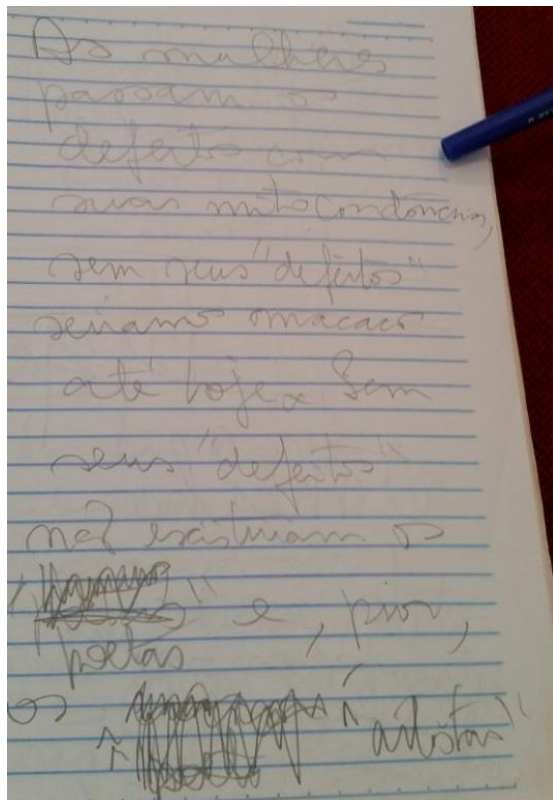 As mulheres
passam os
defeitos com
suas mitocondôncrias,
sem seus "defeitos"
seríamos macacos
até hoje. Sem
seus "defeitos"
não existiriam os
"poetas" e, pior,
os "artistas"